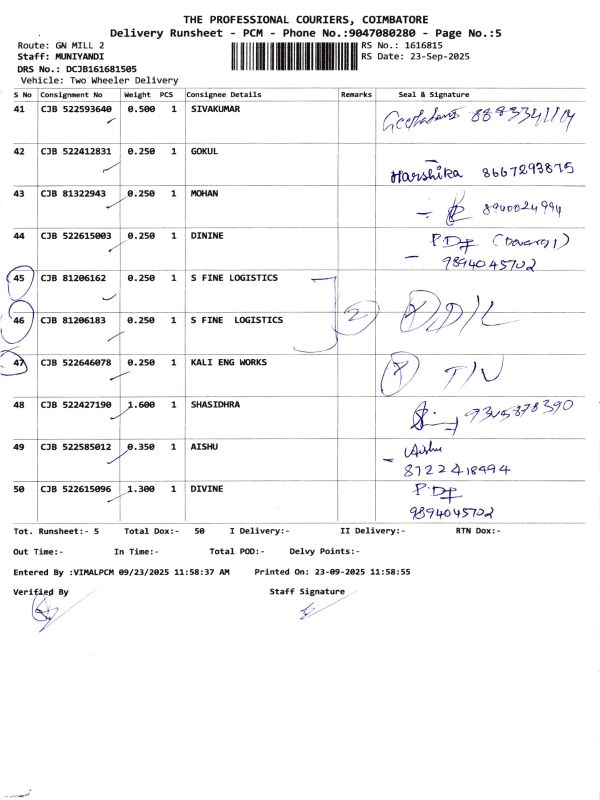 THE PROFESSIONAL COURIERS, COIMBATORE
Delivery Runsheet - PCM - Phone No.:9047080280 - Page No.:5
Route: GN MILL 2 RS No.: 1616815
Staff: MUNIYANDI RS Date: 23-Sep-2025
DRS No.: DCJB161681505
Vehicle: Two Wheeler Delivery
S No Consignment No Weight PCS Consignee Details Remarks Seal & Signature
41 CJB 522593640 0.500 1 SIVAKUMAR
42 CJB 522412831 0.250 1 GOKUL
Harshika 8667293875
43 CJB 81322943 0.250 1 MOHAN
8940024994
44 CJB 522615003 0.250 1 DININE
9894045702
45 CJB 81206162 0.250 1 S FINE LOGISTICS
46 CJB 81206183 0.250 1 S FINE LOGISTICS 2 D/L
47 CJB 522646078 0.250 1 KALI ENG WORKS
48 CJB 522427190 1.600 1 SHASIDHRA 9345878390
49 CJB 522585012 0.350 1 AISHU Aishu
8122418494
50 CJB 522615096 1.300 1 DIVINE
9894045702
Tot. Runsheet:- 5 Total Dox:- 50 I Delivery:- II Delivery:- RTN Dox:-
Out Time:- In Time:- Total POD:- Delvy Points:-
Entered By :VIMALPCM 09/23/2025 11:58:37 AM Printed On: 23-09-2025 11:58:55
Verified By Staff Signature